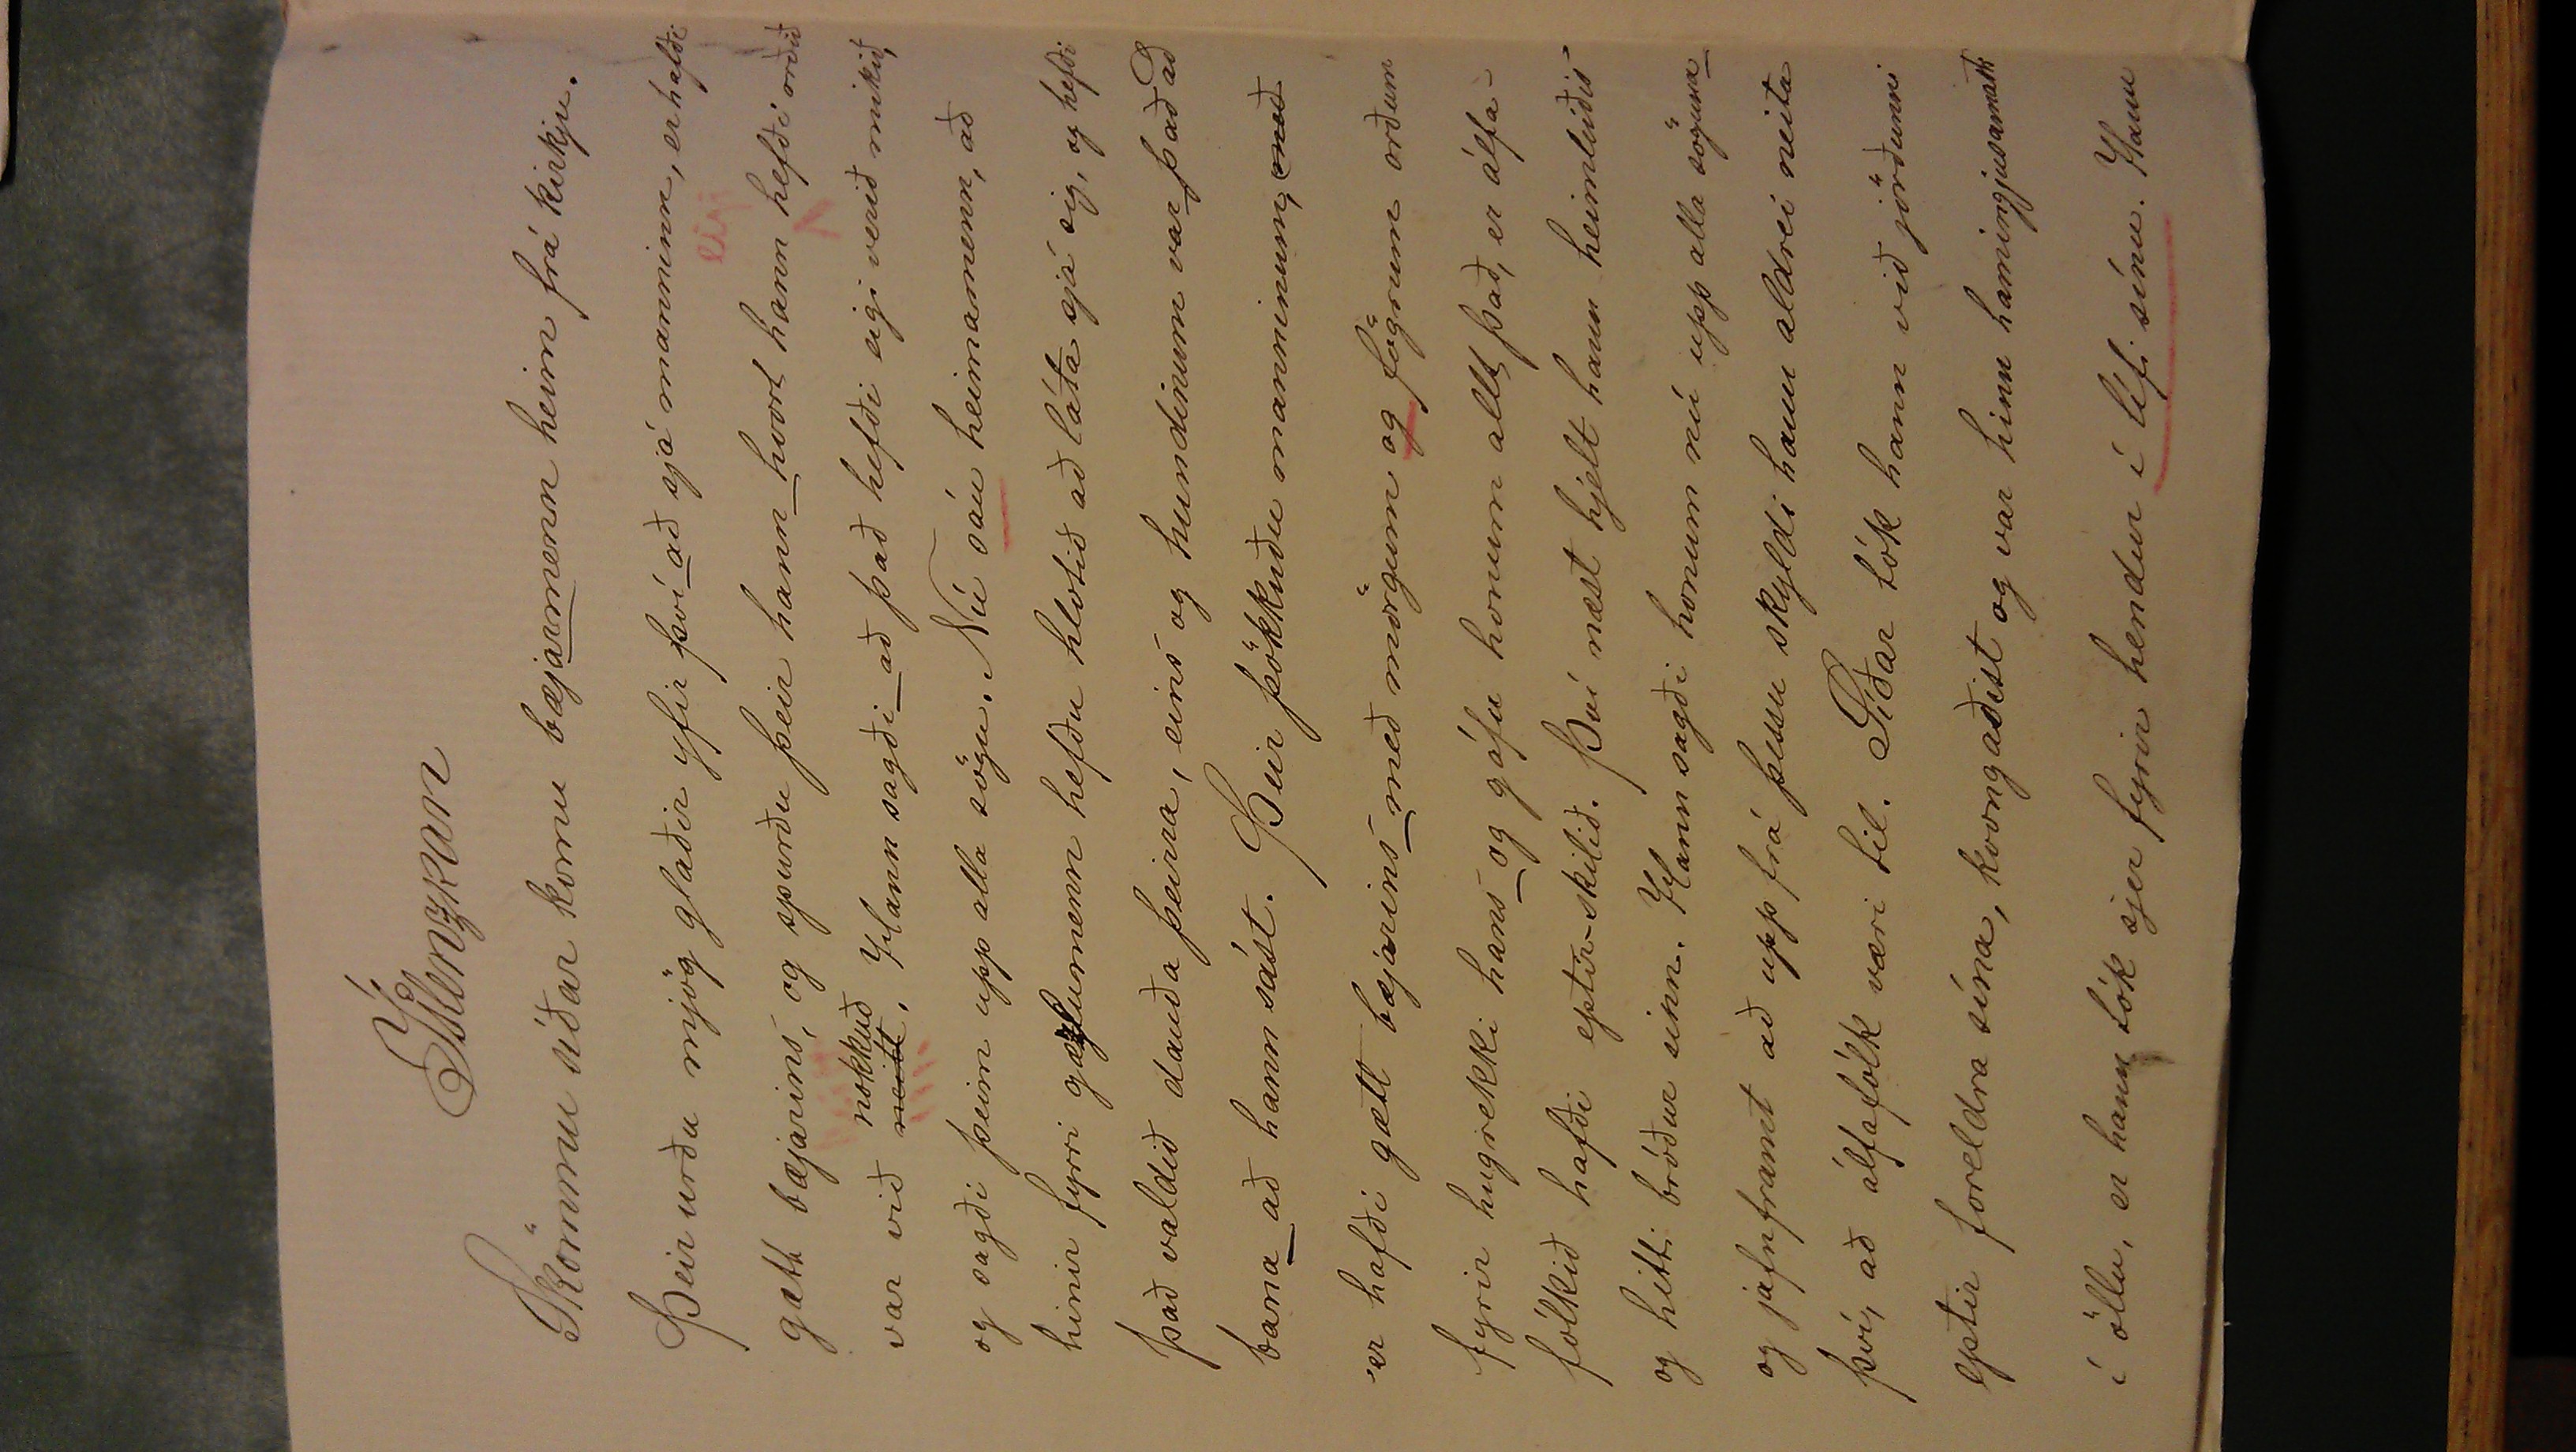 Íslenzkan
Skömmu síðar komu bæjarmenn heim frá kirkju.
Þeir urðu mjög glaðir yfir því að sjá manninn, er hafði
eigi
gætt bæjarins, og spurðu þeir hann hvort hann hefði orðið
nokkuð
var við neitt. Hann sagði að það hefði eigi verið mikið,
og sagði þeim upp alla sögu. Nú sáu heimamenn, að
hinir fyrri gæzlumenn hefðu hlotið að láta sjá sig, og hefði
það valdið dauða þeirra, eins og hundinum var það að
bana að hann sást. Þeir þökkuðu manninum, með
er hafði gætt bæjarins með mörgum og fögrum orðum
fyrir hugrekki hans og gáfu honum allt það, er álfa-
fólkið hafði eptir-skilið. Því næst hjelt hann heimleiðis
og hitti bróður sinn. Hann sagði honum nú upp alla söguna
og jafnframt að upp frá þessu skyldi hann aldrei neita
því, að álfafólk væri til. Síðar tók hann við jörðunni
eptir foreldra sína, kvongaðist og var hinn hamingjusamasti
í öllu, er hann tók sjer fyrir hendur í lífi sínu. Hann